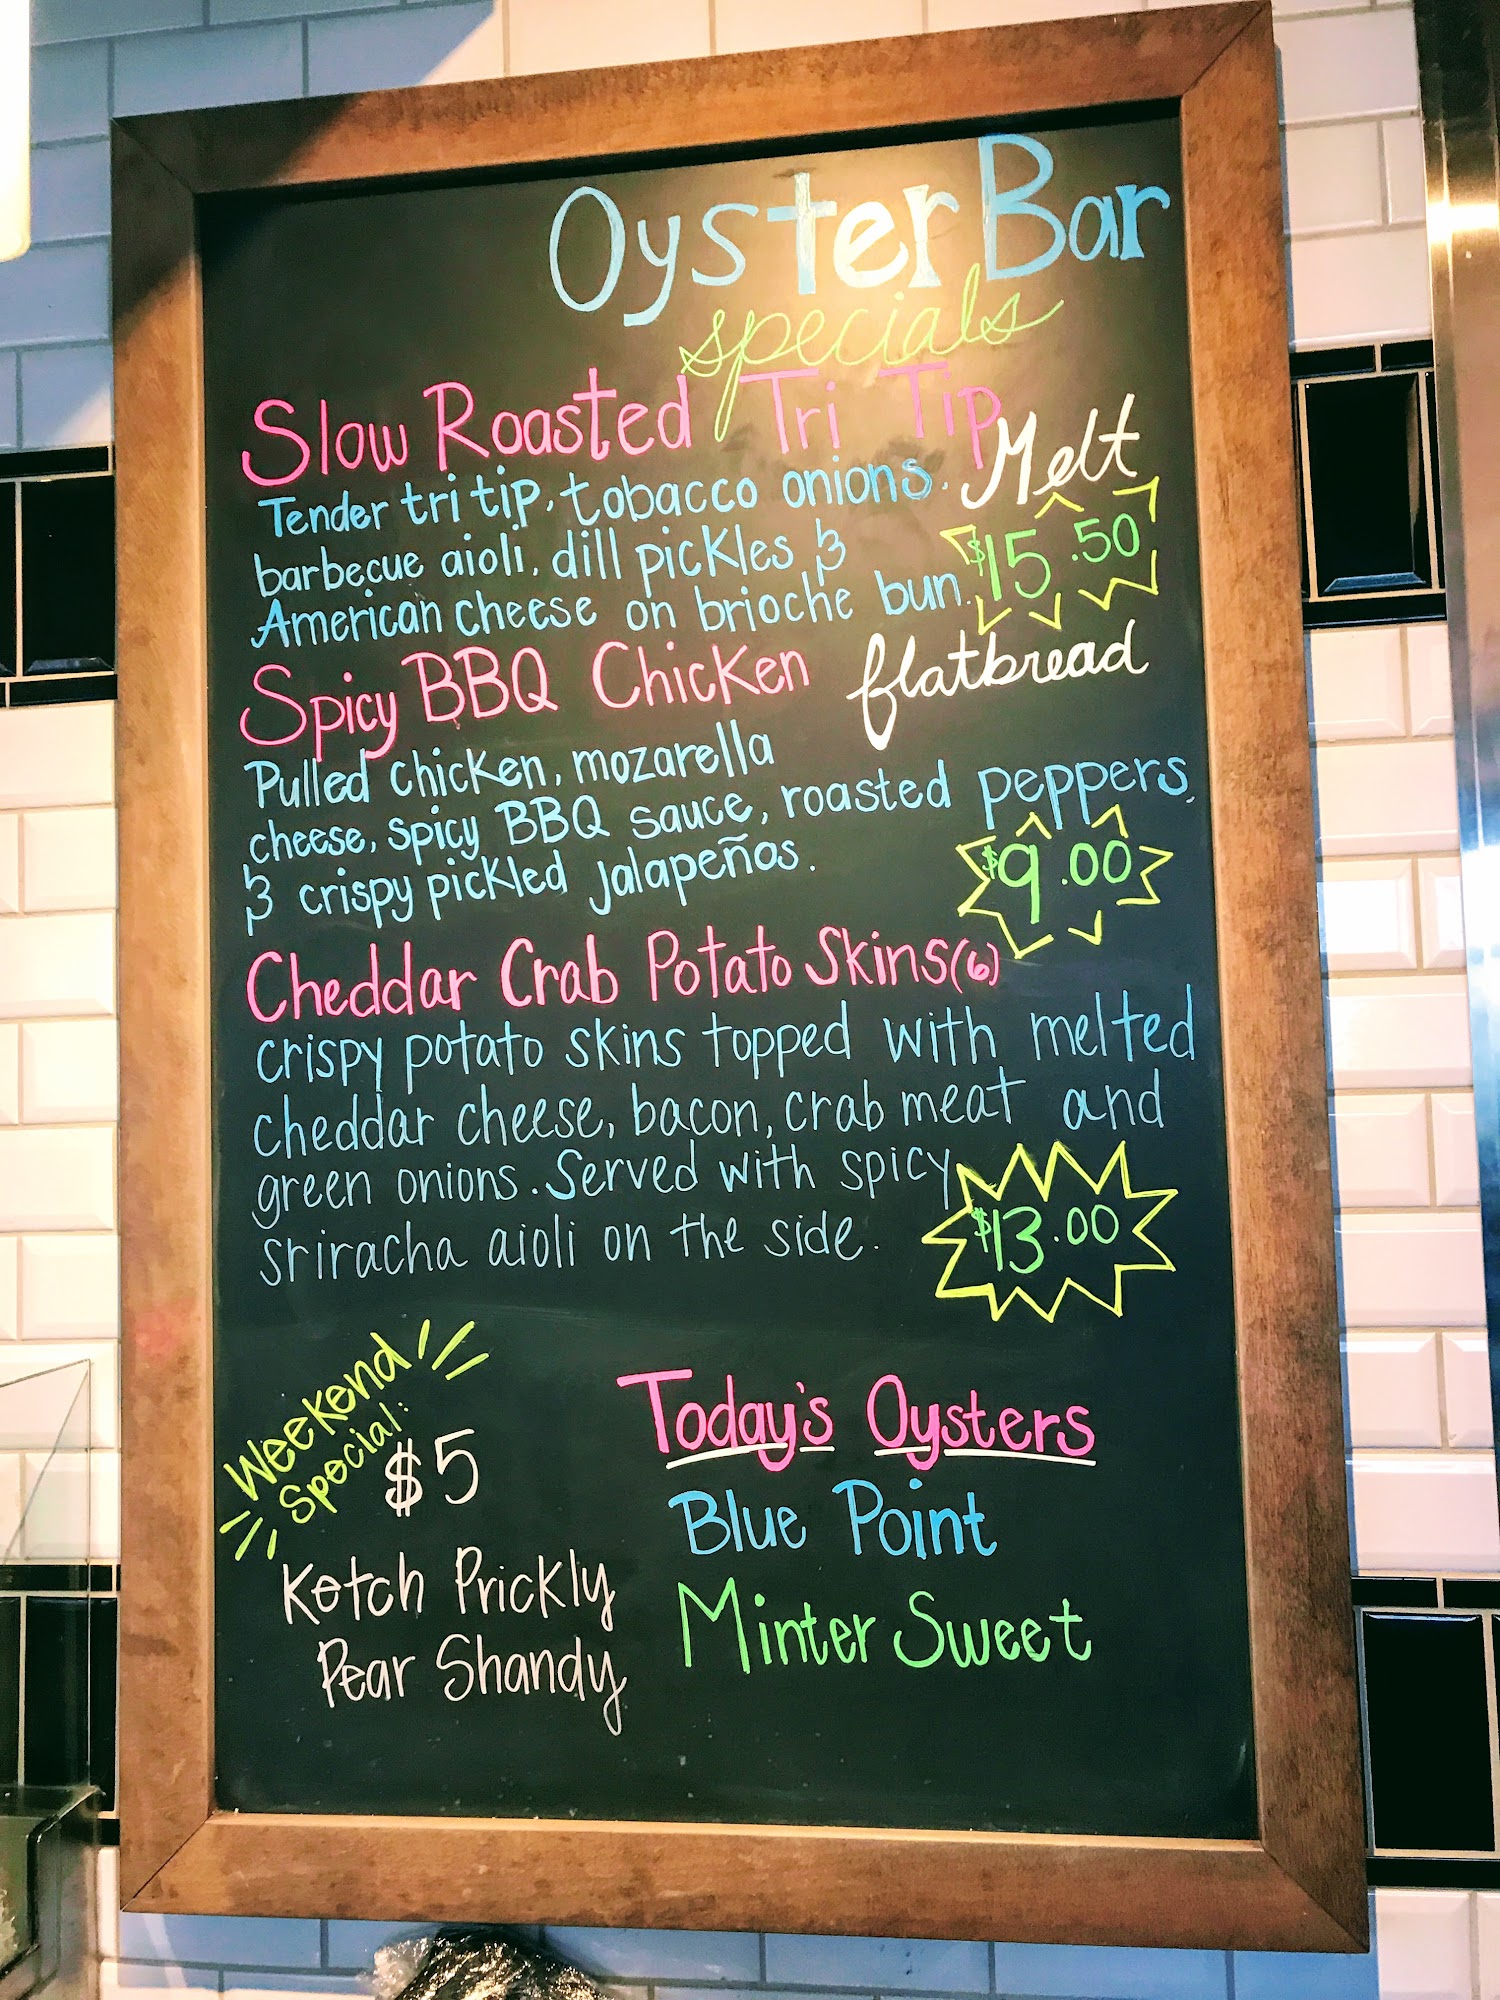 Oyster Bar
specials
Slow Roasted Tri Tip Melt
Tender tri tip, tobacco onions,
barbecue aioli, dill pickles &
American cheese on brioche bun. $15.50
Spicy BBQ Chicken flatbread
Pulled chicken, mozarella
cheese, spicy BBQ sauce, roasted peppers,
& crispy pickled jalapeños.
$9.00
Cheddar Crab Potato Skins (6)
Crispy potato skins topped with melted
cheddar cheese, bacon, crab meat and
green onions. Served with spicy
sriracha aioli on the side. $13.00
Weekend
Special:
$5
Ketch Prickly
Pear Shandy
Today's Oysters
Blue Point
Minter Sweet